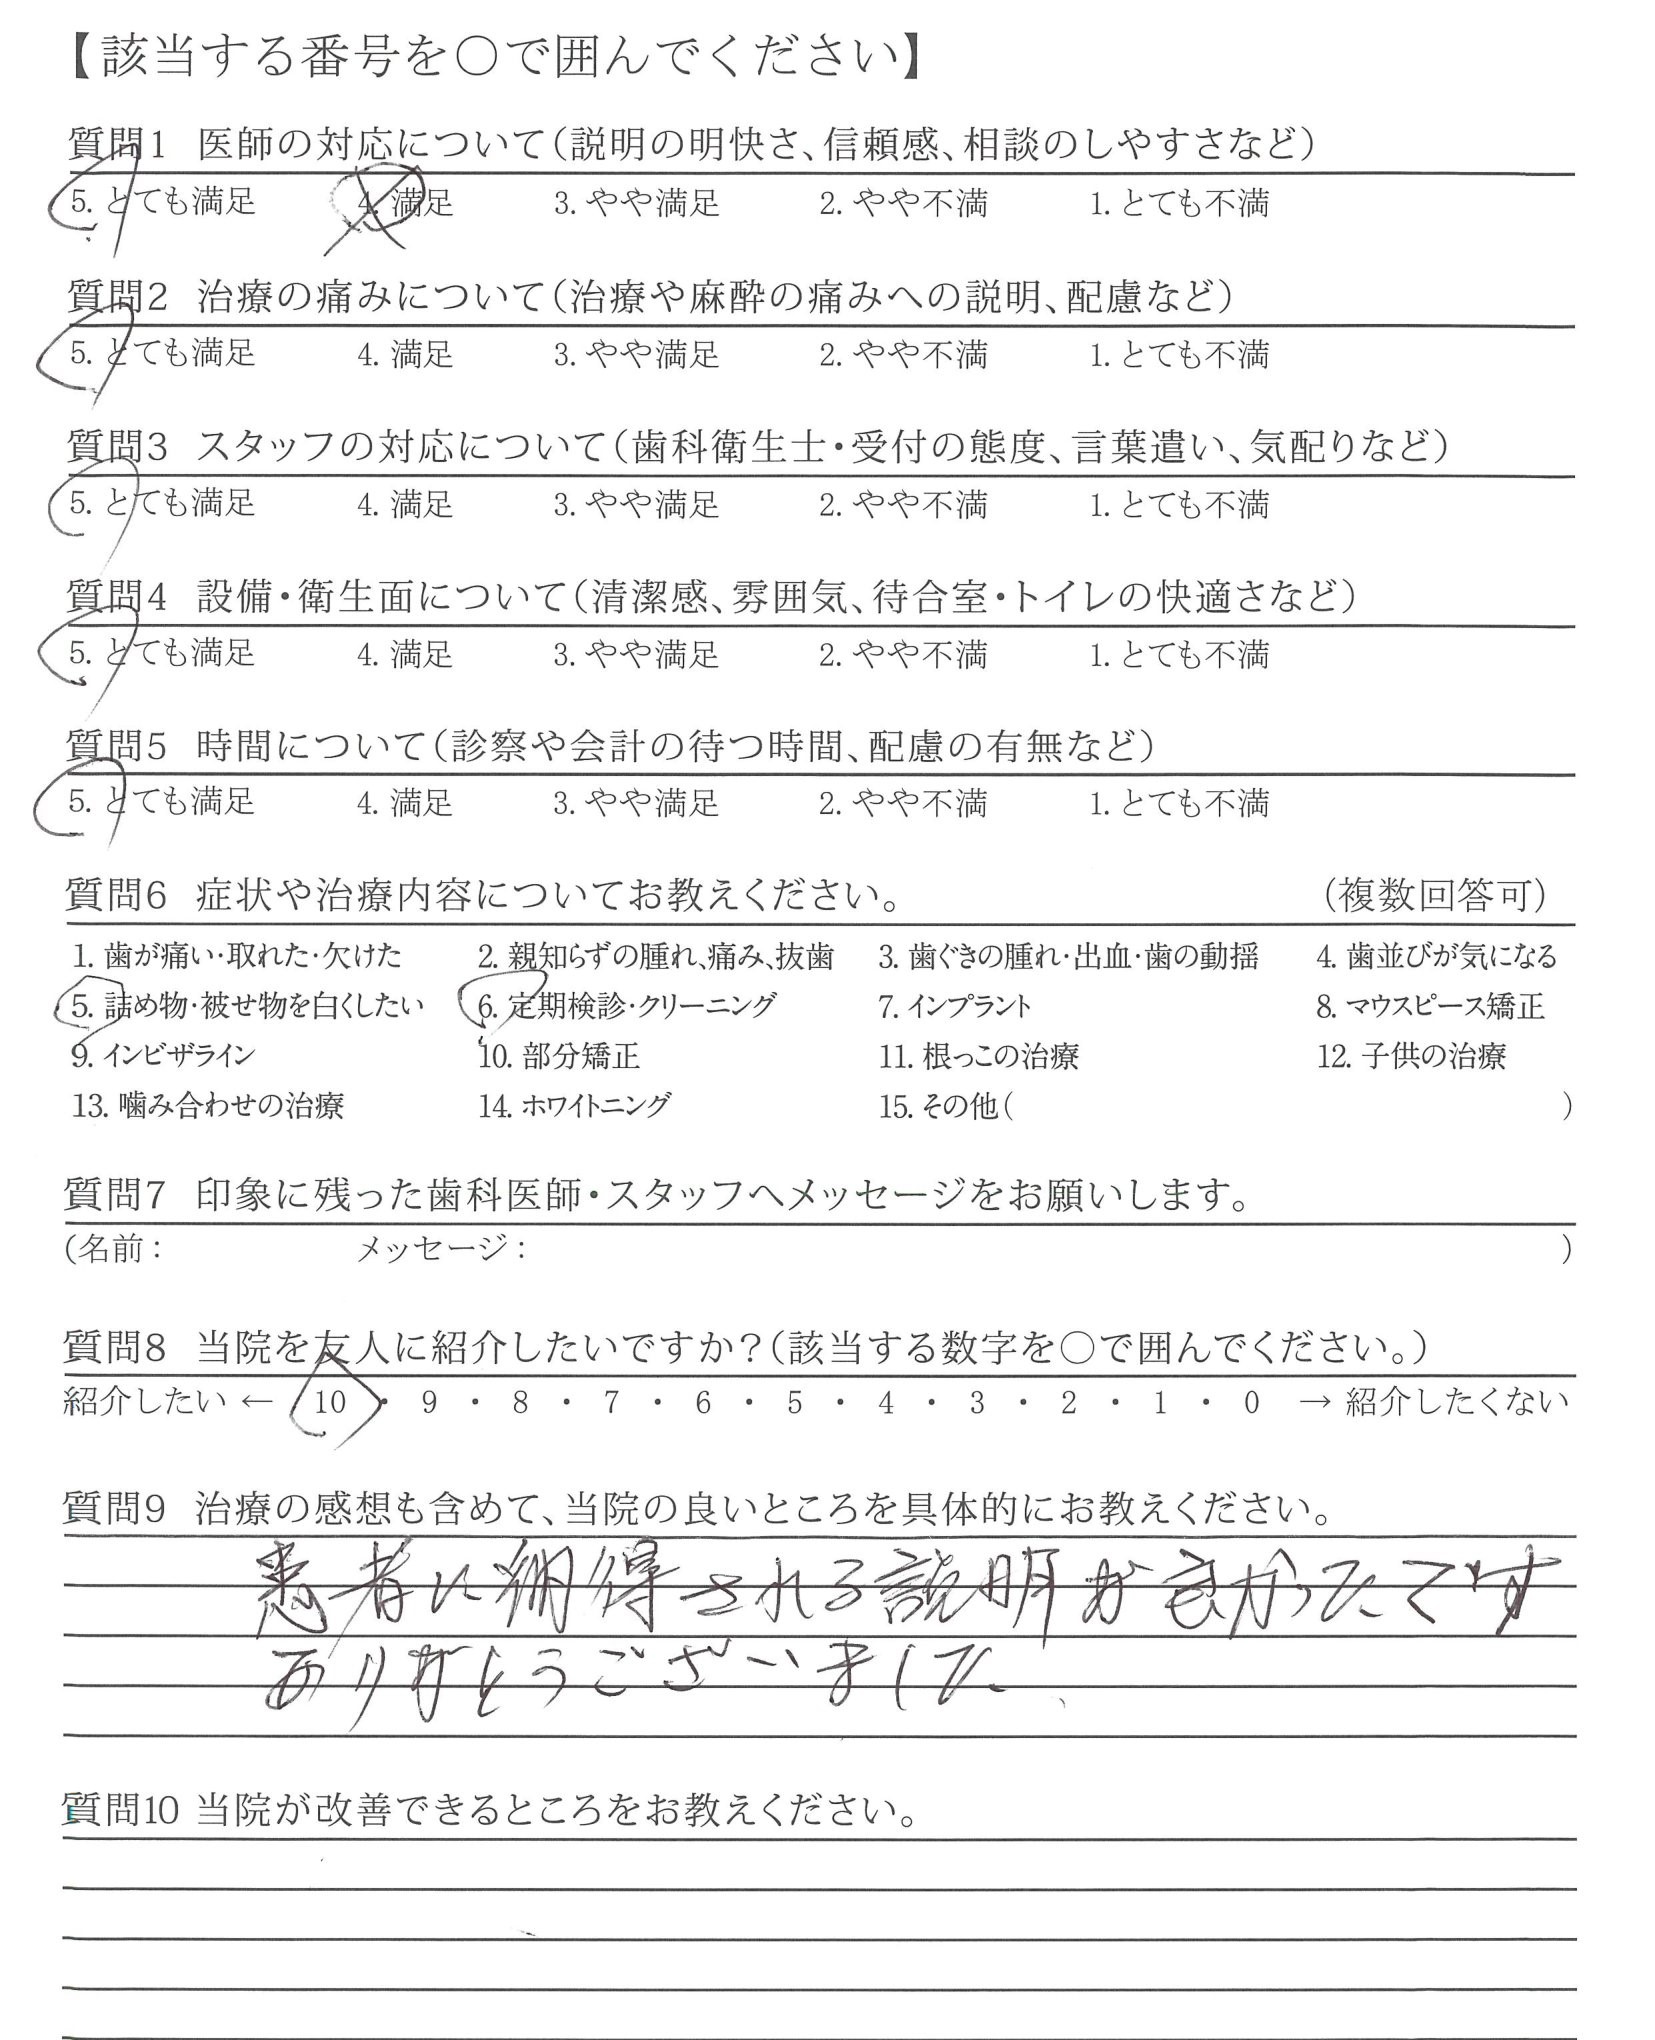 【該当する番号を○で囲んでください】
質問1 医師の対応について(説明の明快さ、信頼感、相談のしやすさなど)
5. とても満足 4. 満足 3. やや満足 2. やや不満 1. とても不満
質問2 治療の痛みについて(治療や麻酔の痛みへの説明、配慮など)
5. とても満足 4. 満足 3. やや満足 2. やや不満 1. とても不満
質問3 スタッフの対応について(歯科衛生士・受付の態度、言葉遣い、気配りなど)
5. とても満足 4. 満足 3. やや満足 2. やや不満 1. とても不満
質問4 設備・衛生面について(清潔感、雰囲気、待合室・トイレの快適さなど)
5. とても満足 4. 満足 3. やや満足 2. やや不満 1. とても不満
質問5 時間について(診察や会計の待つ時間、配慮の有無など)
5. とても満足 4. 満足 3. やや満足 2. やや不満 1. とても不満
質問6 症状や治療内容についてお教えください。 (複数回答可)
1. 歯が痛い・取れた・欠けた 2. 親知らずの腫れ、痛み、抜歯 3. 歯ぐきの腫れ・出血・歯の動揺 4. 歯並びが気になる
5. 詰め物・被せ物を白くしたい 6. 定期検診・クリーニング 7. インプラント 8. マウスピース矯正
9. インビザライン 10. 部分矯正 11. 根っこの治療 12. 子供の治療
13. 噛み合わせの治療 14. ホワイトニング 15. その他( )
質問7 印象に残った歯科医師・スタッフへメッセージをお願いします。
(名前: メッセージ: )
質問8 当院を友人に紹介したいですか?(該当する数字を○で囲んでください。)
紹介したい ← 10 ・ 9 ・ 8 ・ 7 ・ 6 ・ 5 ・ 4 ・ 3 ・ 2 ・ 1 ・ 0 → 紹介したくない
質問9 治療の感想も含めて、当院の良いところを具体的にお教えください。
患者に納得される説明が良かったです
ありがとうございました
質問10 当院が改善できるところをお教えください。